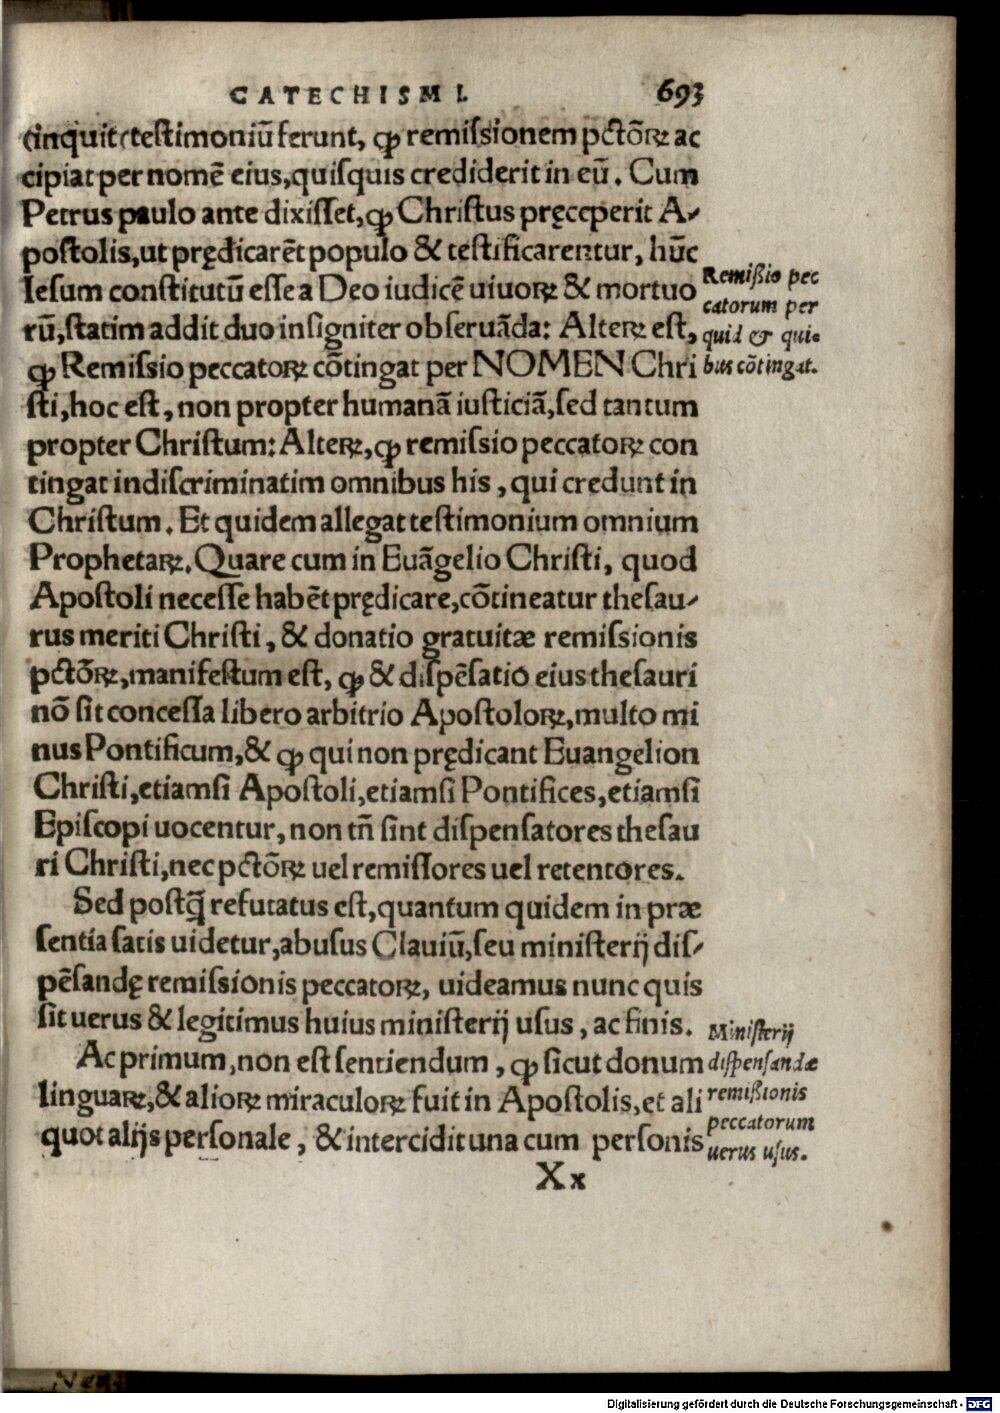 CATECHISMI. 693
(inquit(testimoniũ ferunt, ꝙ remiſsionem pctõꝝ ac
cipiat per nomẽ eius,quiſquis crediderit in eũ. Cum
Petrus paulo ante dixiſſet,ꝙ Chriſtus pręceperit A⸗
poſtolis,ut prędicarẽt populo & teſtificarentur, hũc
Ieſum conſtitutũ eſſe a Deo iudicẽ uiuoꝝ & mortuo
rũ,ſtatim addit duo inſigniter obſeruãda: Alteꝝ eſt,
ꝙ Remiſsio peccatoꝝ cõtingat per NOMEN Chri
ſti,hoc eſt, non propter humanã iuſticiã,ſed tantum
propter Chriſtum: Alteꝝ,ꝙ remiſsio peccatoꝝ con
tingat indiſcriminatim omnibus his, qui credunt in
Chriſtum. Et quidem allegat teſtimonium omnium
Prophetaꝝ. Quare cum in Euãgelio Chriſti, quod
Apoſtoli neceſſe habẽt prędicare,cõtineatur theſau⸗
rus meriti Chriſti, & donatio gratuitæ remiſsionis
pctõꝝ,manifeſtum eſt, ꝙ & diſpẽſatio eius theſauri
nõ ſit conceſſa libero arbitrio Apoſtoloꝝ,multo mi
nus Pontificum,& ꝙ qui non prędicant Euangelion
Chriſti,etiamſi Apoſtoli,etiamſi Pontifices,etiamſi
Epiſcopi uocentur, non tñ ſint diſpenſatores theſau
ri Chriſti,nec pctõꝝ uel remiſſores uel retentores.
Sed poſtꝗ̃ refutatus eſt,quantum quidem in præ
ſentia ſatis uidetur,abuſus Clauiũ,ſeu miniſterij diſ⸗
pẽſandę remiſsionis peccatoꝝ, uideamus nunc quis
ſit uerus & legitimus huius miniſterij uſus, ac finis.
Ac primum,non eſt ſentiendum, ꝙ ſicut donum
linguaꝝ,& alioꝝ miraculoꝝ fuit in Apoſtolis,et ali
quot alijs perſonale, & intercidit una cum perſonis
Xx
Remißio pec
catorum per
quid & qui⸗
bus cõtingat.
Miniſterij
diſpenſandæ
remißionis
peccatorum
uerus uſus.
Digitalisierung gefördert durch die Deutsche Forschungsgemeinschaft - DFG